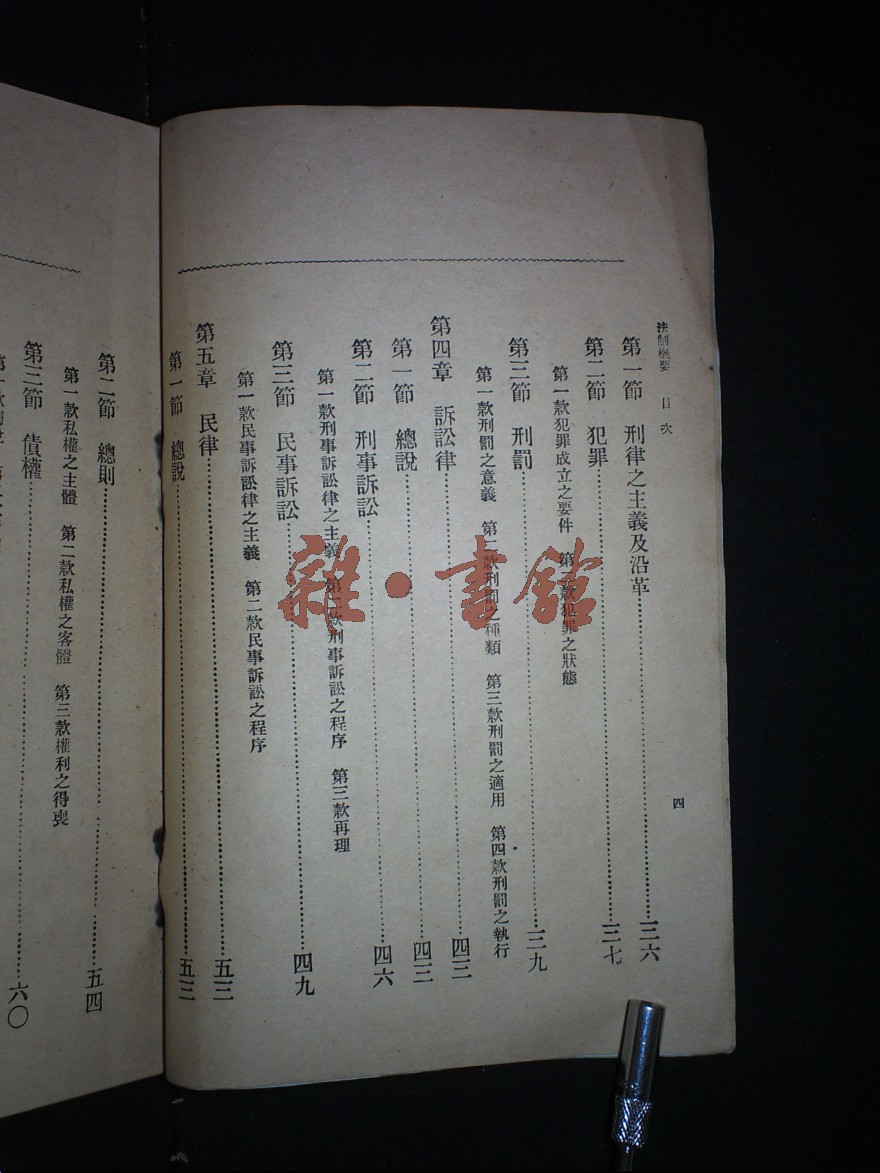 法制概要 目次
第一節 刑律之主義及沿革…三六
第二節 犯罪…三七
第一款犯罪成立之要件 第二款犯罪之狀態
第三節 刑罰…三九
第一款刑罰之意義 第二款刑罰之種類 第三款刑罰之適用 第四款刑罰之執行
第四章 訴訟律…四三
第一節 總說…四三
第二節 刑事訴訟…四六
第一款刑事訴訟律之主義 第二款刑事訴訟之程序 第三款再理
第三節 民事訴訟…四九
第一款民事訴訟律之主義 第二款民事訴訟之程序
第五章 民律…五三
第一節 總說…五三
四
第二節 總則…五四
第一款私權之主體 第二款私權之客體 第三款權利之得喪
第三節 債權…六〇
雜·書館